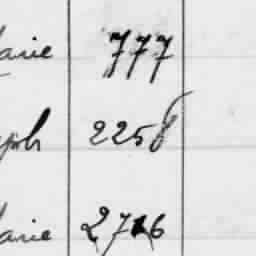 arie 777
eph 2258
arie 2716